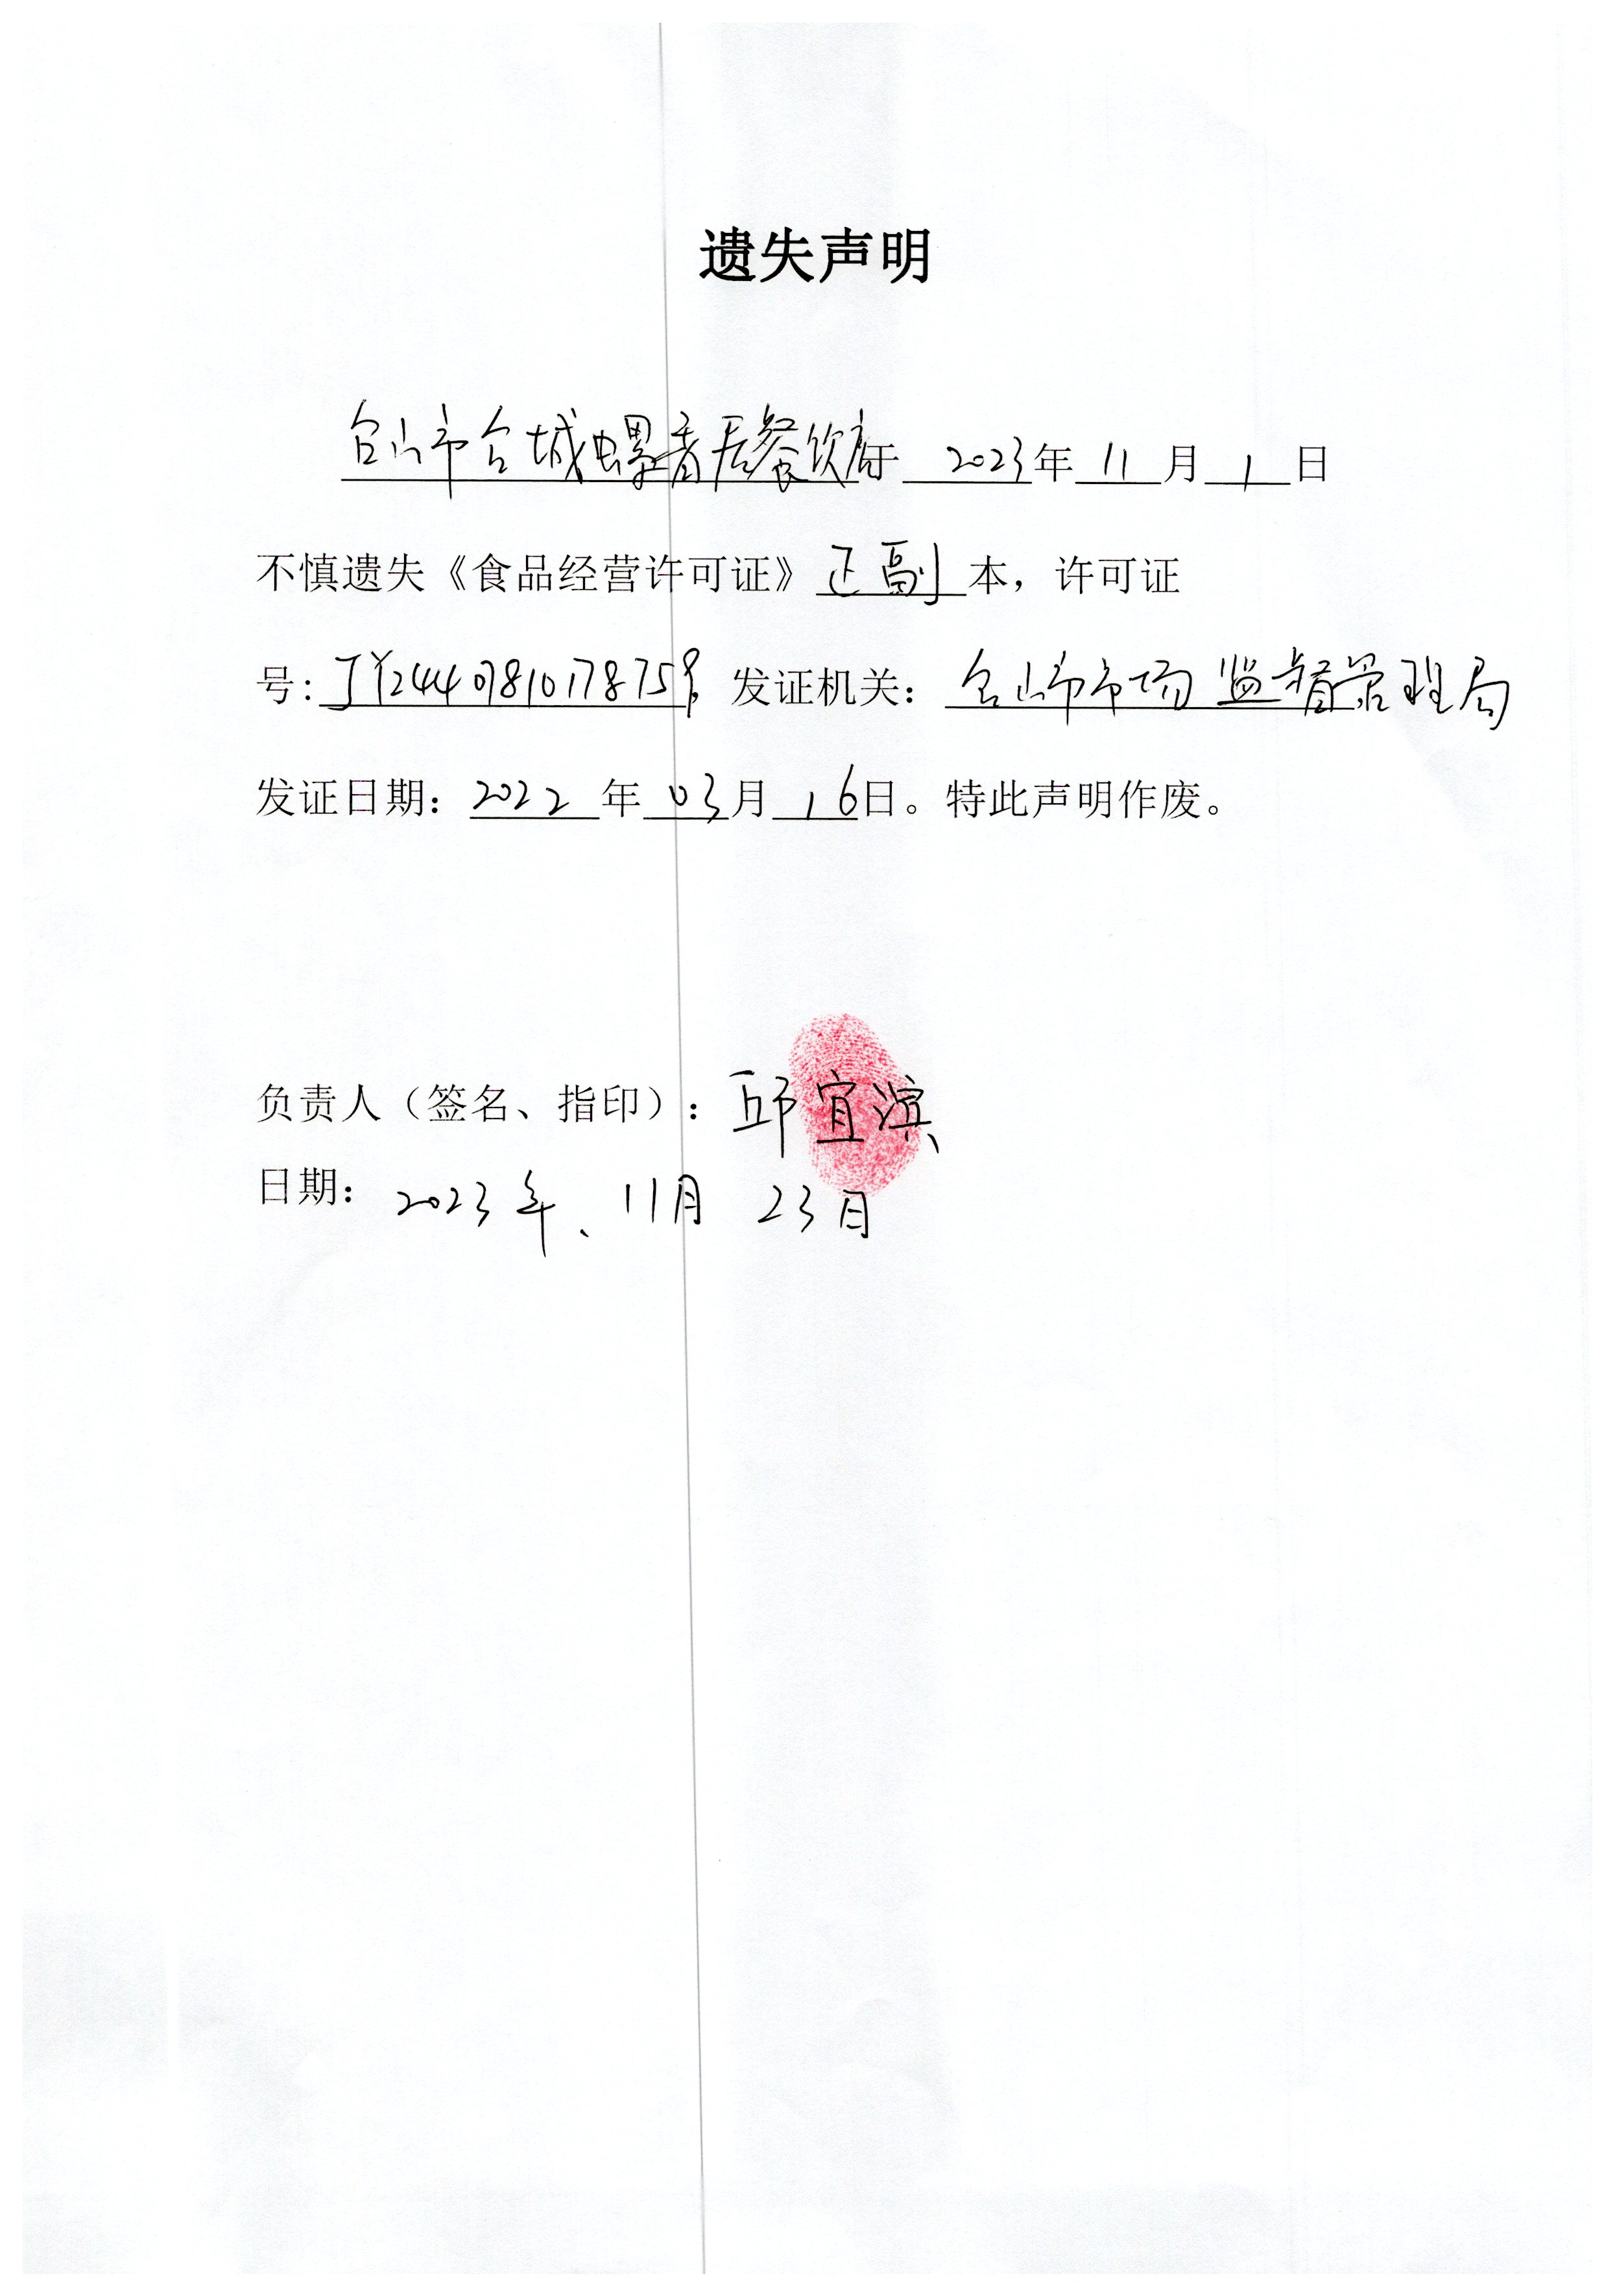 遗失声明
台山市台城螺香居餐饮店于 2023年 11 月 1 日
不慎遗失《食品经营许可证》正副本，许可证
号：JY24407810178758，发证机关：台山市市场监督管理局
发证日期：2022年03月16日。特此声明作废。
负责人（签名、指印）：邱宜滨
日期：2023年、11月 23日